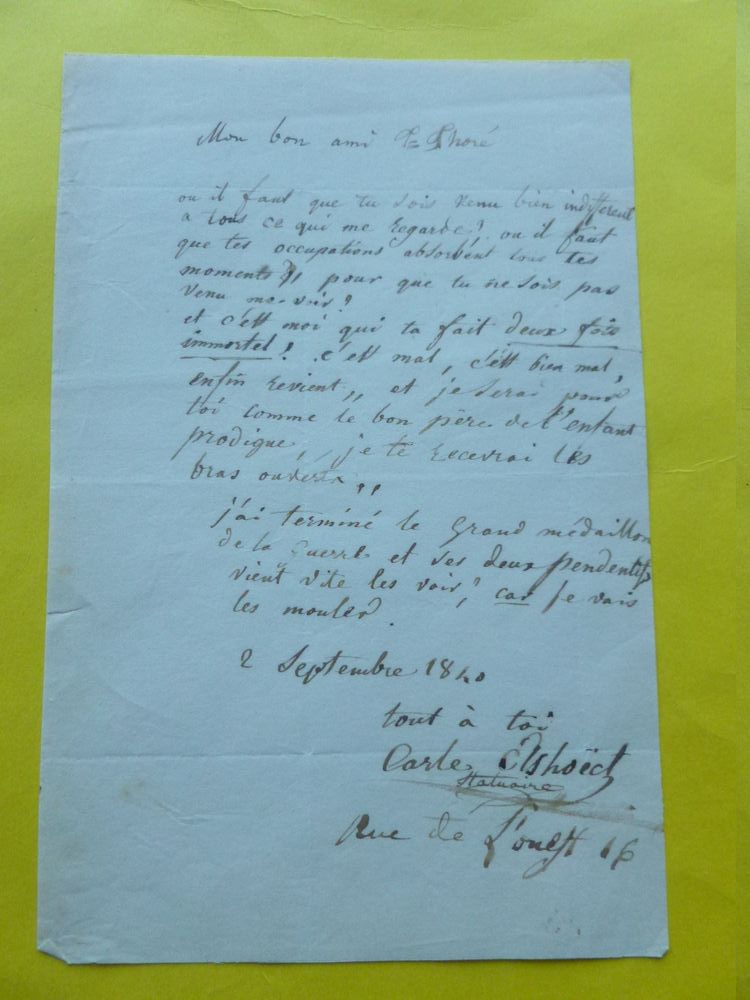 Mon bon ami Thoré
ou il faut que tu sois venu bien indifferent
a tous ce qui me regarde! ou il faut
que tes occupations absorbent tous tes
moments ,, pour que tu ne sois pas
venu me voir?
et c'est moi qui ta fait deux fois
immortel! c'est mal, c'est bien mal,
enfin revient,, et je serai pour
toi comme le bon père de l'enfant
prodigue, je te recevrai les
bras ouverts,,
j'ai terminé le Grand médaillon
de la Guerre et ses deux pendentifs
vient vite les voir! car je vais
les mouler.
2 Septembre 1840
tout à toi
Carle Elshoëct
Statuaire
Rue de L'ouest 16